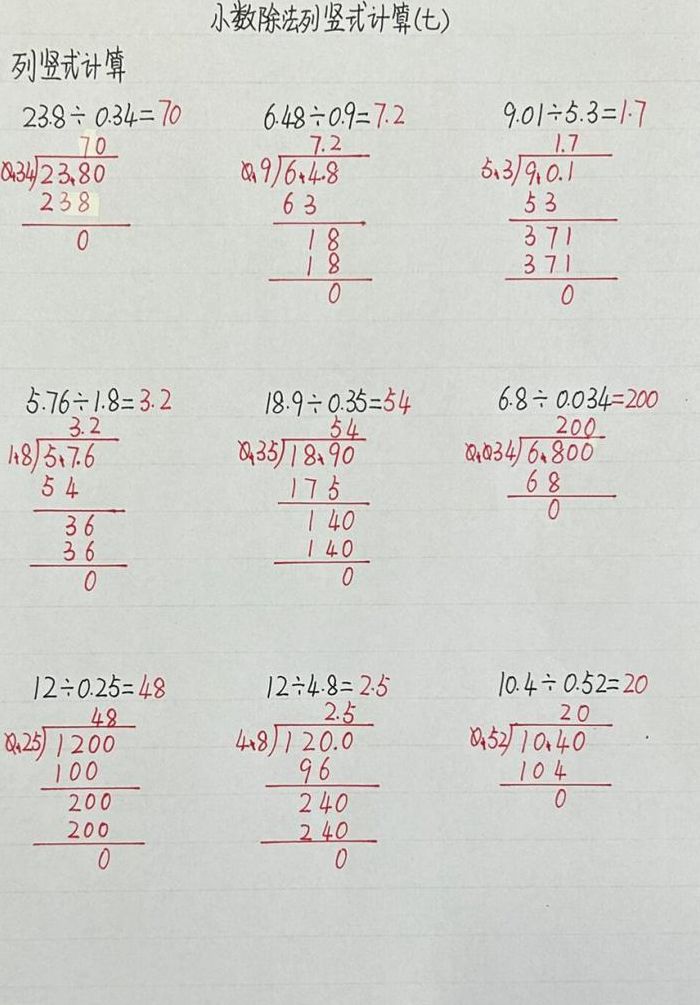 小数除法列竖式计算(七)
列竖式计算
23.8÷0.34=70
70
0.34 23.80
238
0
6.48÷0.9=7.2
7.2
0.9 6.4.8
63
18
18
0
9.01÷5.3=1.7
1.7
5.3 9.0.1
53
371
371
0
5.76÷1.8=3.2
3.2
1.8 5.7.6
54
36
36
0
18.9÷0.35=54
54
0.35 18.90
175
140
140
0
6.8÷0.034=200
200
0.034 6.800
68
0
12÷0.25=48
48
0.25 1200
100
200
200
0
12÷4.8=2.5
2.5
4.8 120.0
96
240
240
0
10.4÷0.52=20
20
0.52 10.40
104
0